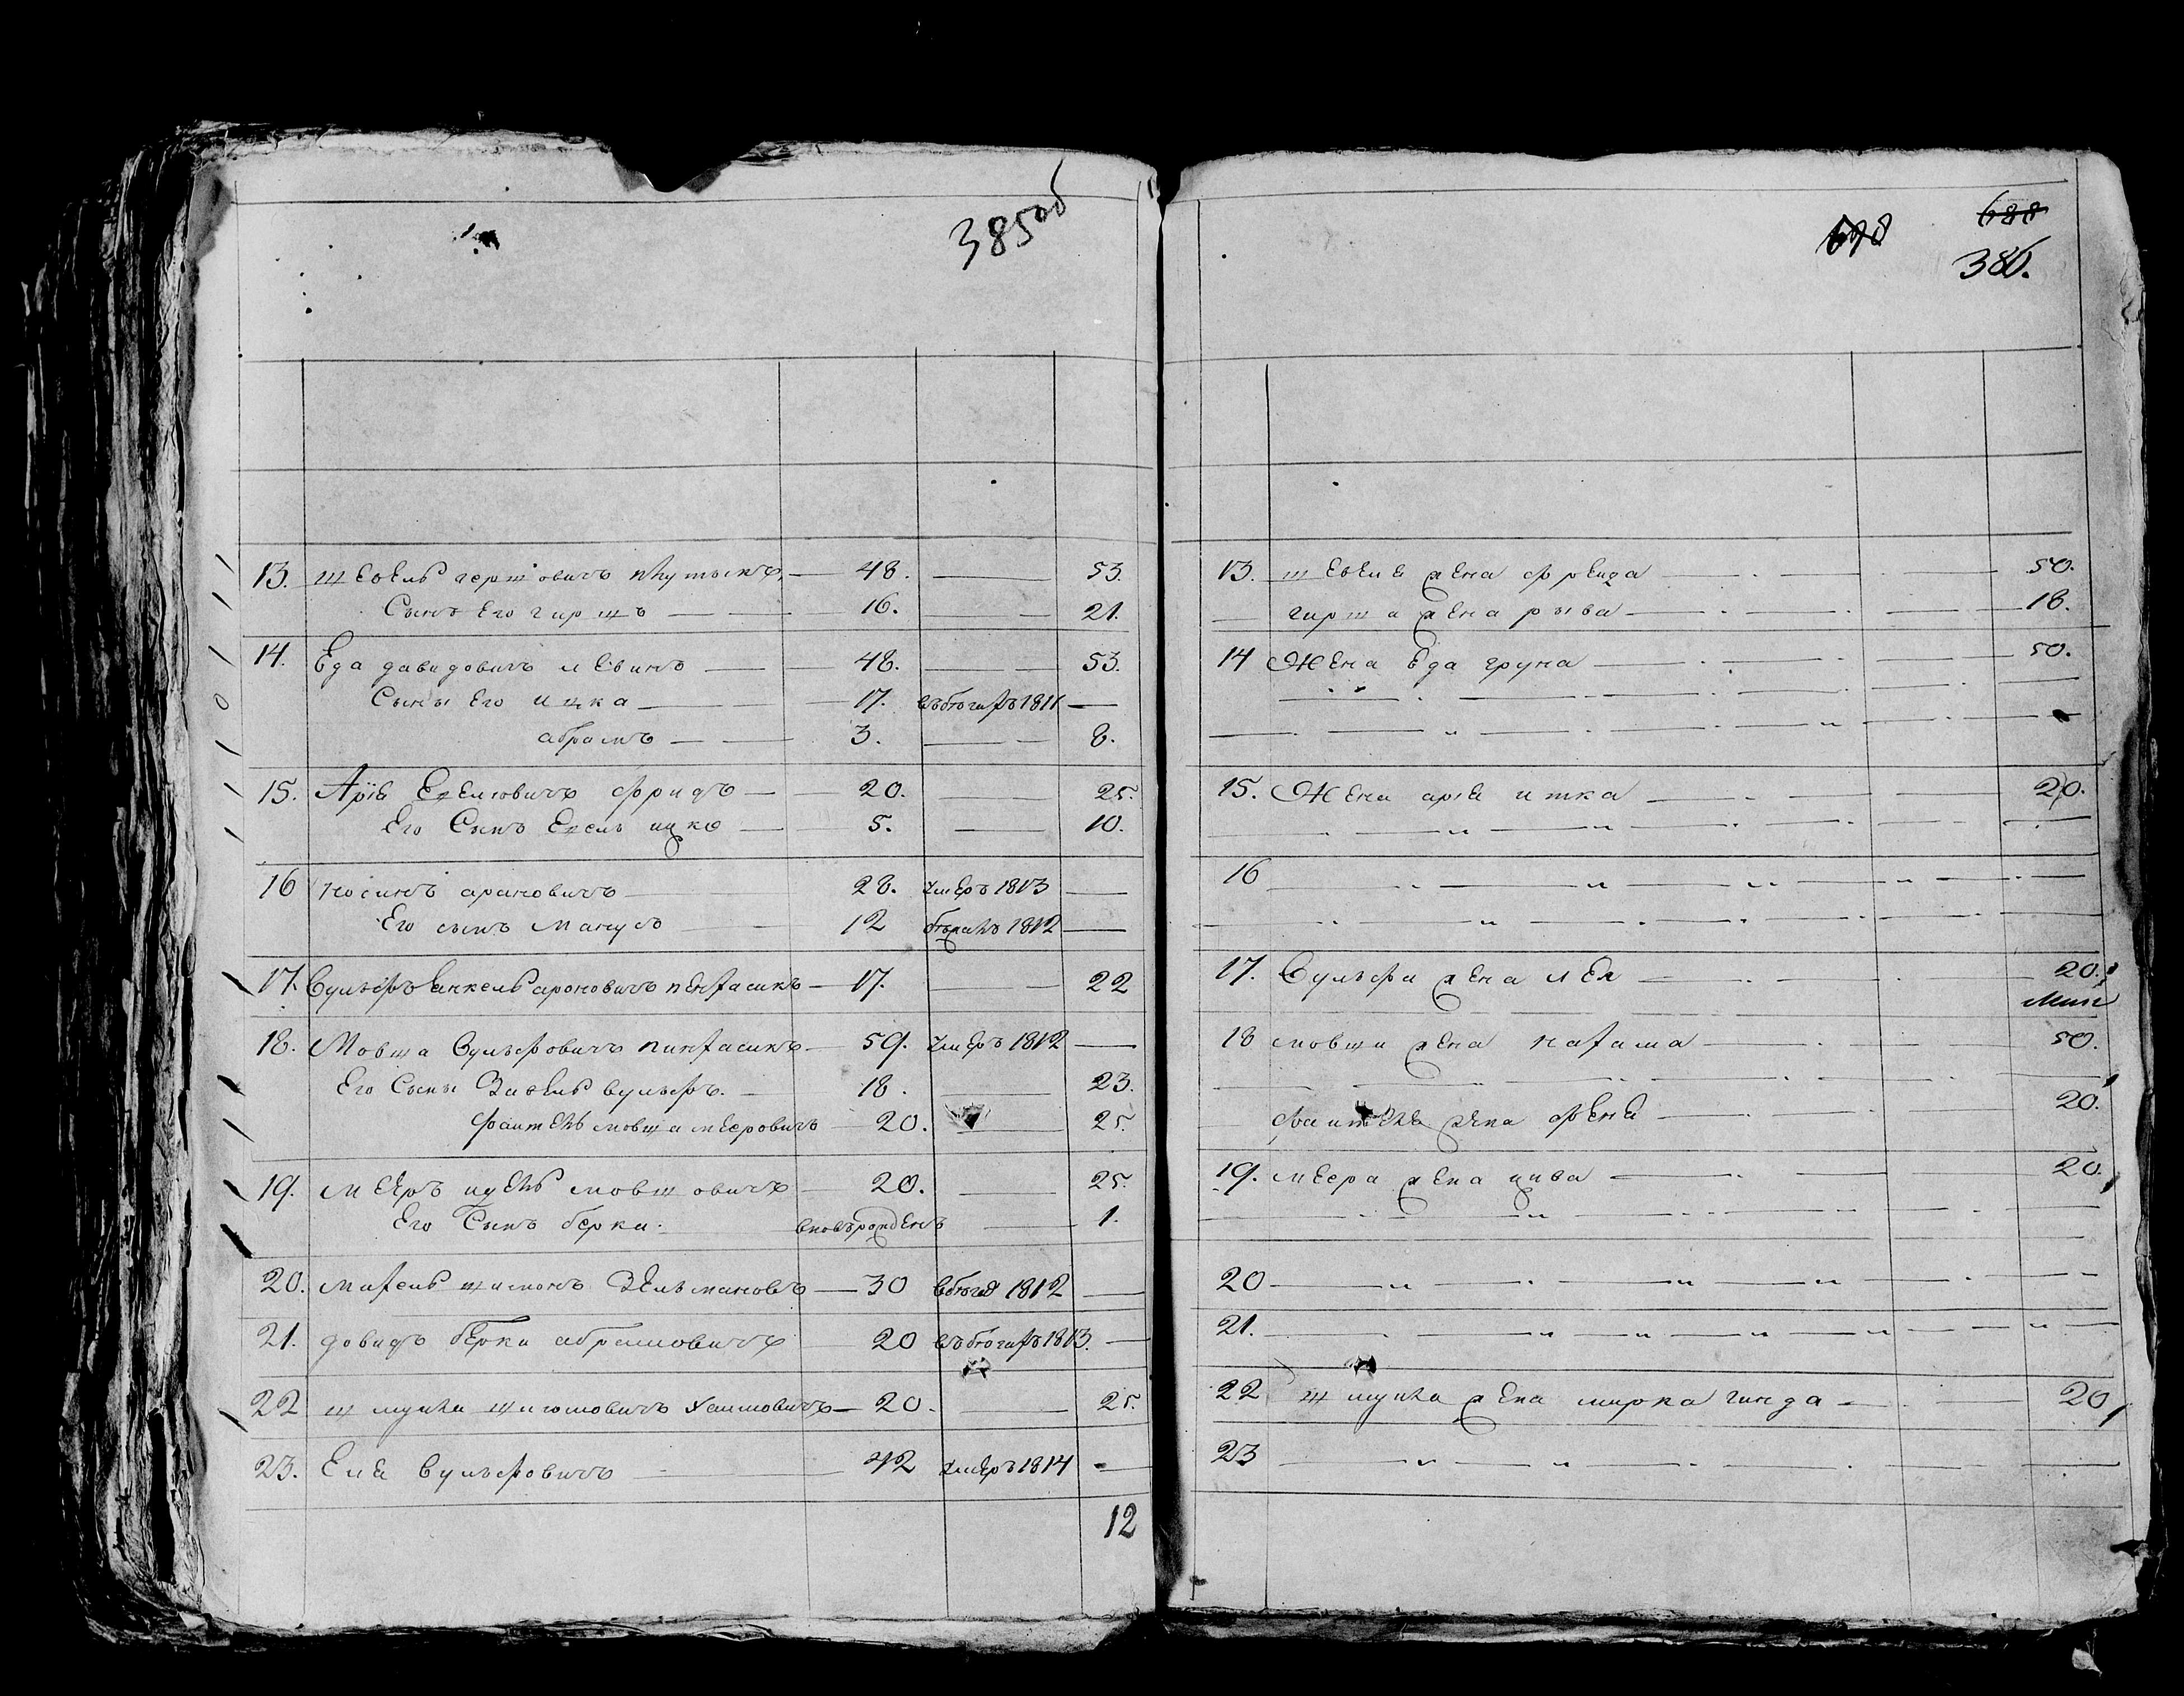 385об
13. шевель гершовичъ 48. 53.
Сынъ Его гиршъ 16. 21.
14. Еда давидовичъ левинъ 48. 53.
Сыны Его ицка 17. въ бегахъ 1811
абрамъ 3. 8.
15. Аріе Ехелиовичъ Фридъ 20. 25.
Его Сынъ Ехель ицко 5. 10.
16 носинъ ароновичъ 28. умеръ 1813
Его сынъ манусъ 12 1812
17. Вульфъ янкель ароновичъ пентасикъ 17. 22
18. Мовша Вульфовичъ пинтасикъ 59. умеръ 1812
Его Сыны Завель вульфъ. 18. 23.
файтель мовша меэровичъ 20. 25.
19. меэръ идель мовшовичъ 20. 25.
Его Сынъ берка. вновьрожденъ 1.
20. шимонъ Зельмановъ 30 1812
21. довидъ берка абрамовичъ 20 въ бегахъ 1813.
22 шмуйла шиомовичъ хаимовичъ 20. 25.
23. Еля вульфовичъ 42 умеръ 1814
12
698 688
386.
13. шевеля жена фрейда 50.
гирша жена рыва 18.
14 Жена Еда груна 50.
15. Жена аріе итка 20.
16
17. Вульфа жена лея 20.
18 мовши жена 50.
файтеля жена фене 20.
19. меера жена цива 20.
20
21.
22 шмуйла жена мирка гинда 20
23